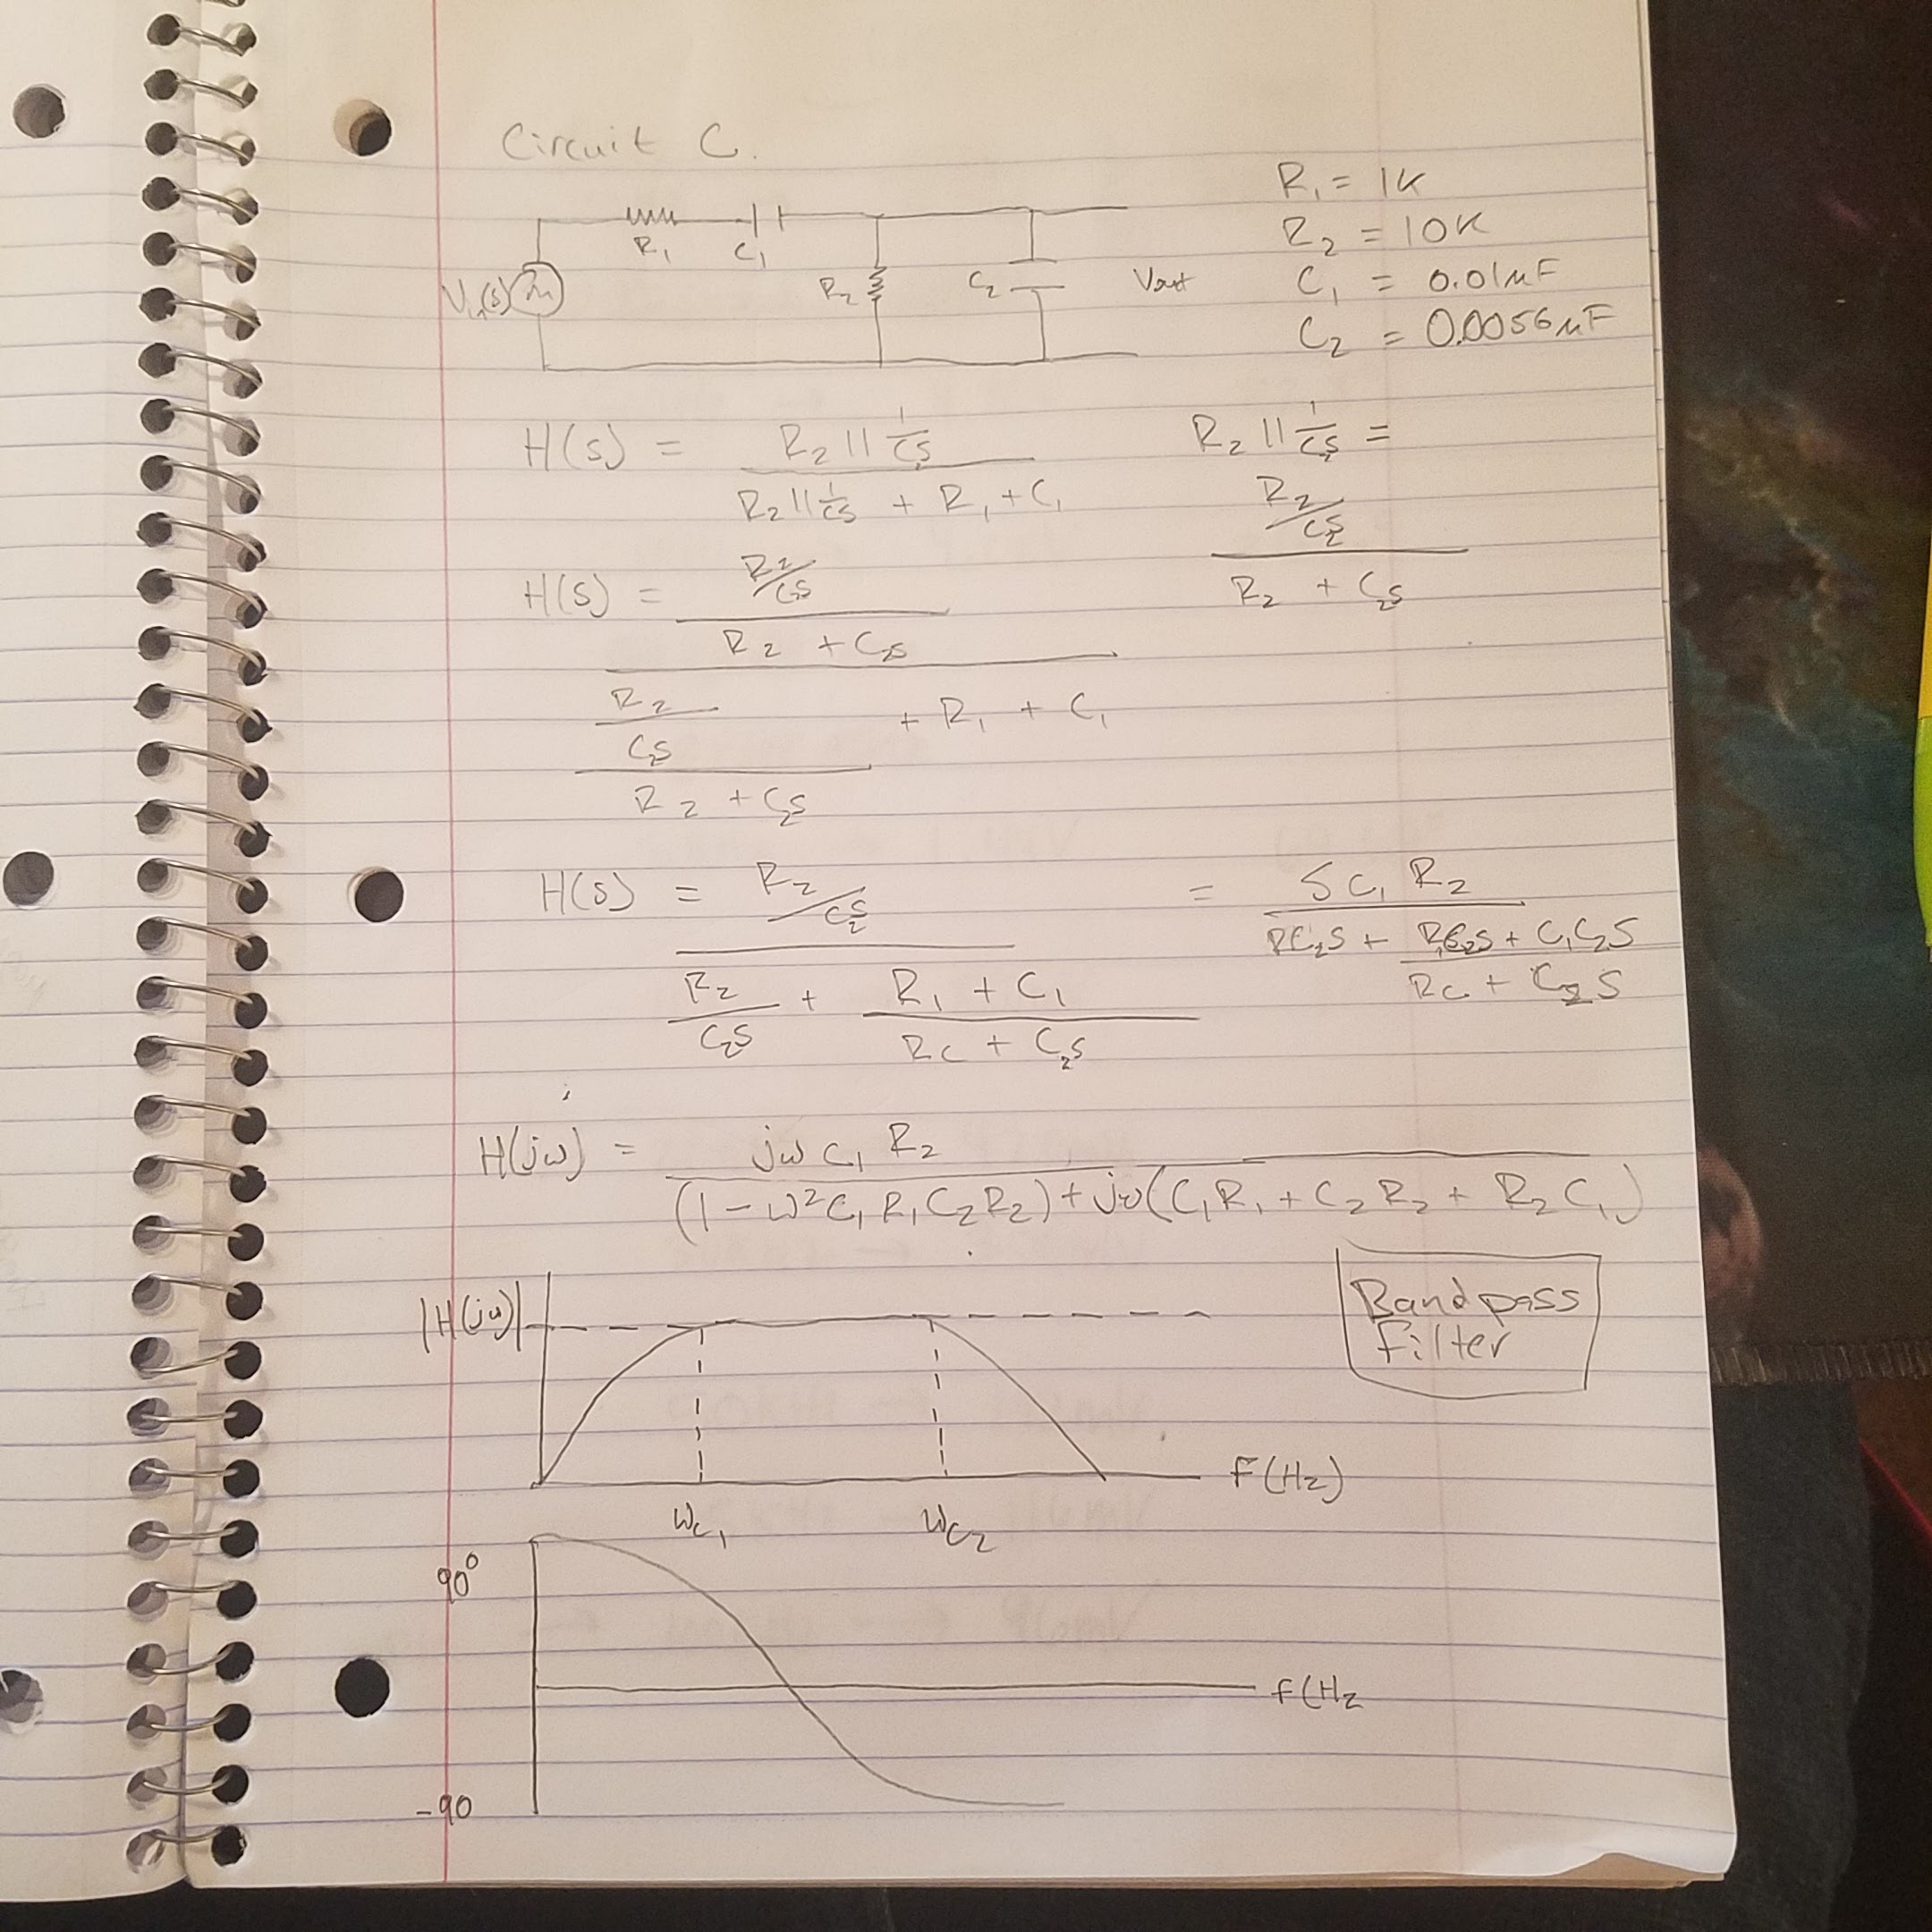 Circuit C.
R₁ = 1K
R₂ = 10K
C₁ = 0.01μF
C₂ = 0.0056μF
R₁ C₁
Vin(s) R₂ C₂ Vout
H(s) = R₂ || 1/C₂s / R₂ || 1/Cs + R₁ + C₁
R₂ || 1/C₂s =
R₂/C₂s / R₂ + C₂s
H(s) = R₂/C₂s / R₂ + C₂s
R₂ / C₂s / R₂ + C₂s + R₁ + C₁
H(s) = R₂/C₂s / R₂/C₂s + R₁ + C₁ / Rc + C₂s
= S C₁ R₂ / RC₂S + R₁C₂S + C₁C₂S / Rc + C₂S
H(jω) = jω C₁ R₂ / (1 - ω²C₁R₁C₂R₂) + jω(C₁R₁ + C₂R₂ + R₂C₁)
|H(jω)|
Bandpass
filter
F(Hz)
ωc₁ ωc₂
90°
f(Hz
-90